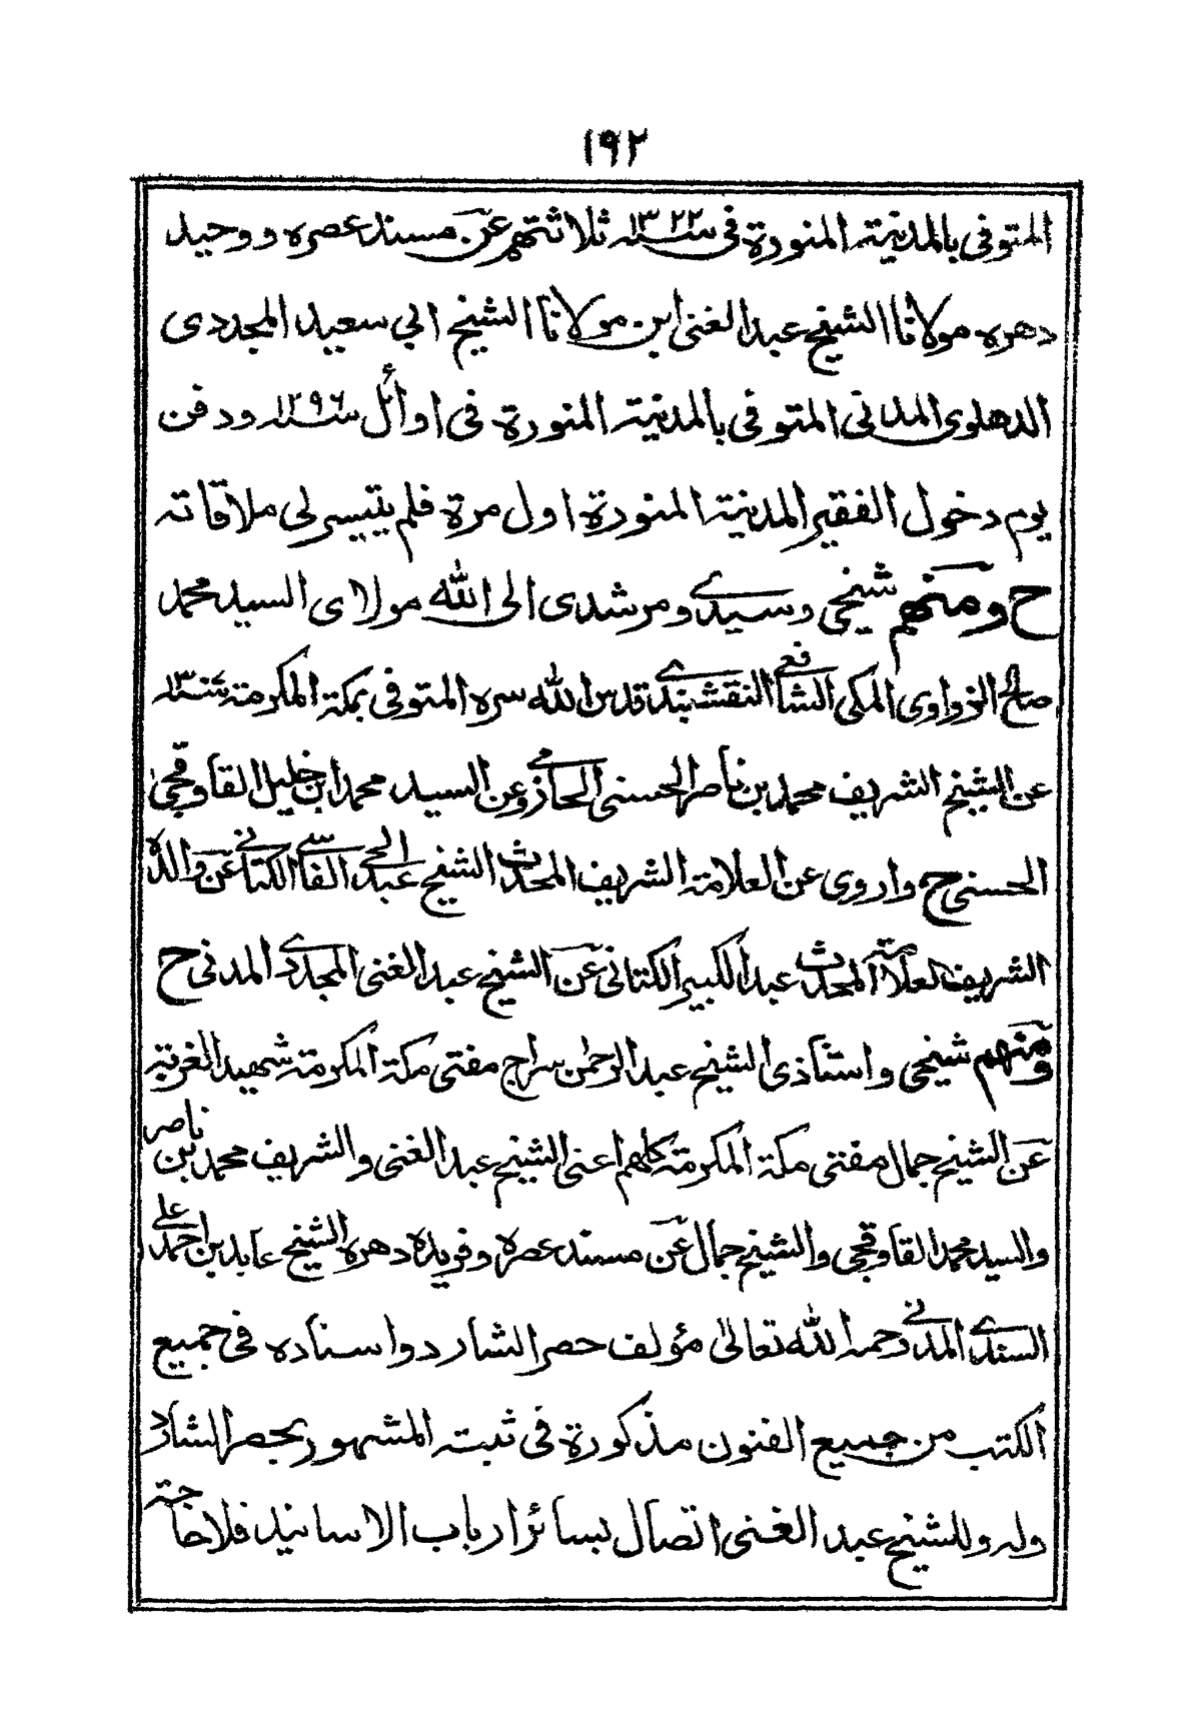 ١٩٢
المتوفى بالمدينة المنورة فى سنة ١٣٢٢ ثلاثتهم عن مسند عصره ووحيد
دهره مولانا الشيخ عبد الغنى ابن مولانا الشيخ ابي سعيد المجددى
الدهلوى المدنى المتوفى بالمدينة المنورة فى اوائل سنة ١٢٩٦ ودفن
يوم دخول الفقير المدينة المنورة اول مرة فلم يتيسر لى ملاقاته
ح ومنهم شيخى وسيدى ومرشدى الى الله مولاى السيد محمد
صالح الزواوى المكى الشافعى النقشبندى قدس الله سره المتوفى بمكة المكرمة سنة ١٣
عن الشيخ الشريف محمد بن ناصر الحسنى الحازمى وعن السيد محمد ابن خليل القاوقجى
الحسنى ح واروى عن العلامة الشريف المحدث الشيخ عبد الحى الفاسى الكتانى عن والده
الشريف العلامة المحدث عبد الكبير الكتانى عن الشيخ عبد الغنى المجددى المدنى ح
ومنهم شيخى واستاذى الشيخ عبد الرحمن سراج مفتى مكة المكرمة شهيد الغربة
عن الشيخ جمال مفتى مكة المكرمة كلهم اعنى الشيخ عبد الغنى والشريف محمد بن ناصر
والسيد محمد القاوقجى والشيخ جمال عن مسند عصره وفريدة دهره الشيخ عابد بن احمد على
السندى المدنى رحمه الله تعالى مؤلف حصر الشارد واسناده فى جميع
الكتب من جميع الفنون مذكورة فى ثبته المشهور بحصر الشارد
وله وللشيخ عبد الغنى اتصال بسائر ارباب الاسانيد فلاحاجة